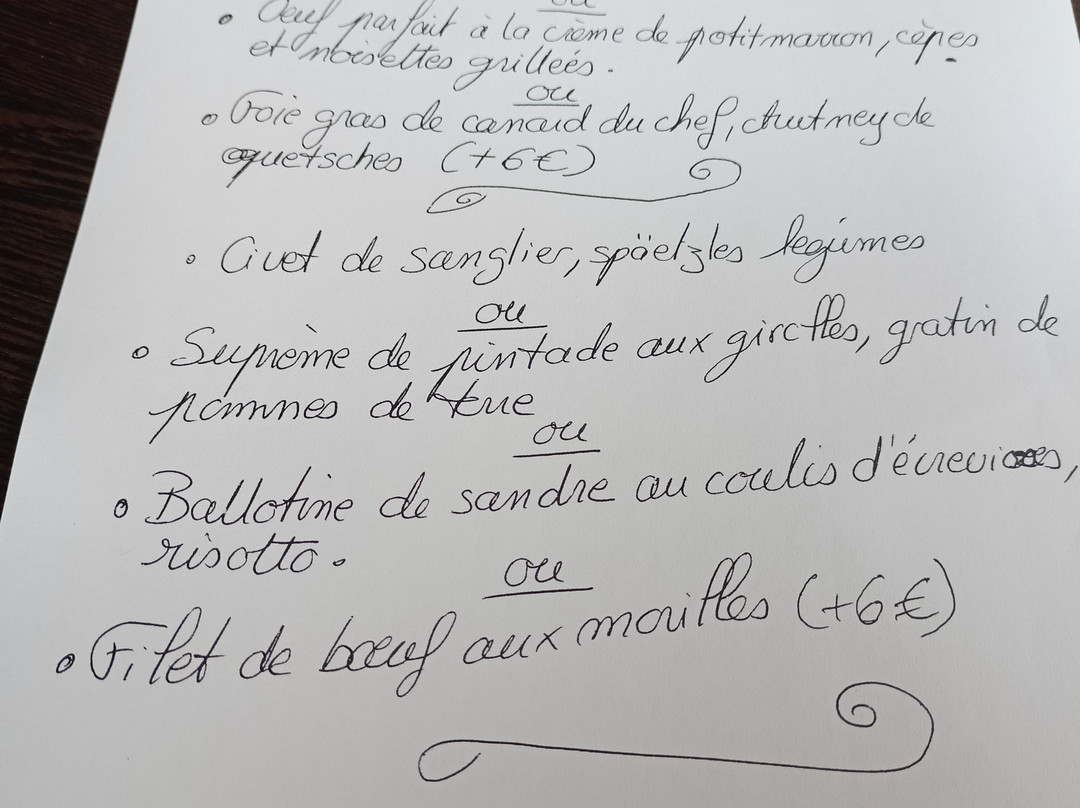 ou
• Oeuf parfait à la crème de potitmarron, cèpes
et noisettes grillées.
ou
• Foie gras de canard du chef, chutney de
quetsches (+6€)
• Civet de sanglier, späetzles légumes
ou
• Suprème de pintade aux girolles, gratin de
pommes de terre
ou
• Ballotine de sandre au coulis d'écrevisses,
risotto.
ou
• Filet de bœuf aux morilles (+6€)